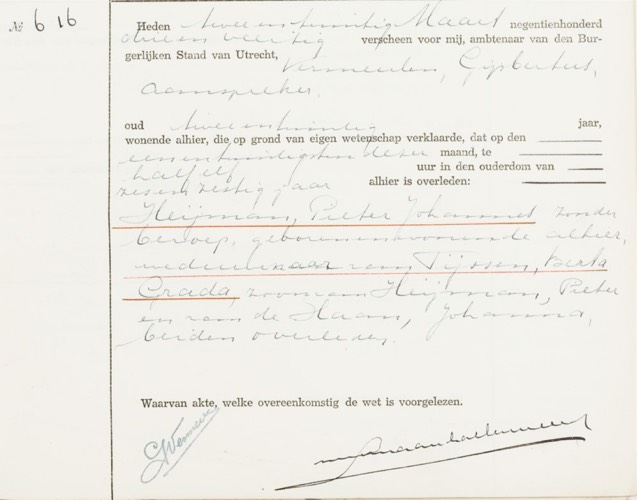 № 616
Heden twee en twintig Maart negentienhonderd
drie en veertig verscheen voor mij, ambtenaar van den Bur-
gerlijken Stand van Utrecht,
Vermeulen, Gijsbertus,
aanspreker,
oud jaar,
wonende alhier, die op grond van eigen wetenschap verklaarde, dat op den
een en twintigsten dezer maand, te
half elf uur in den ouderdom van
zes en zestig jaar alhier is overleden:
Heijman, Pieter Johannes zonder
beroep, geboren en wonende alhier,
weduwnaar van Tijssen, Berta
Grada, zoon van Heijman, Pieter
en van de Haan, Johanna,
beiden overleden.
Waarvan akte, welke overeenkomstig de wet is voorgelezen.
GVermeulen